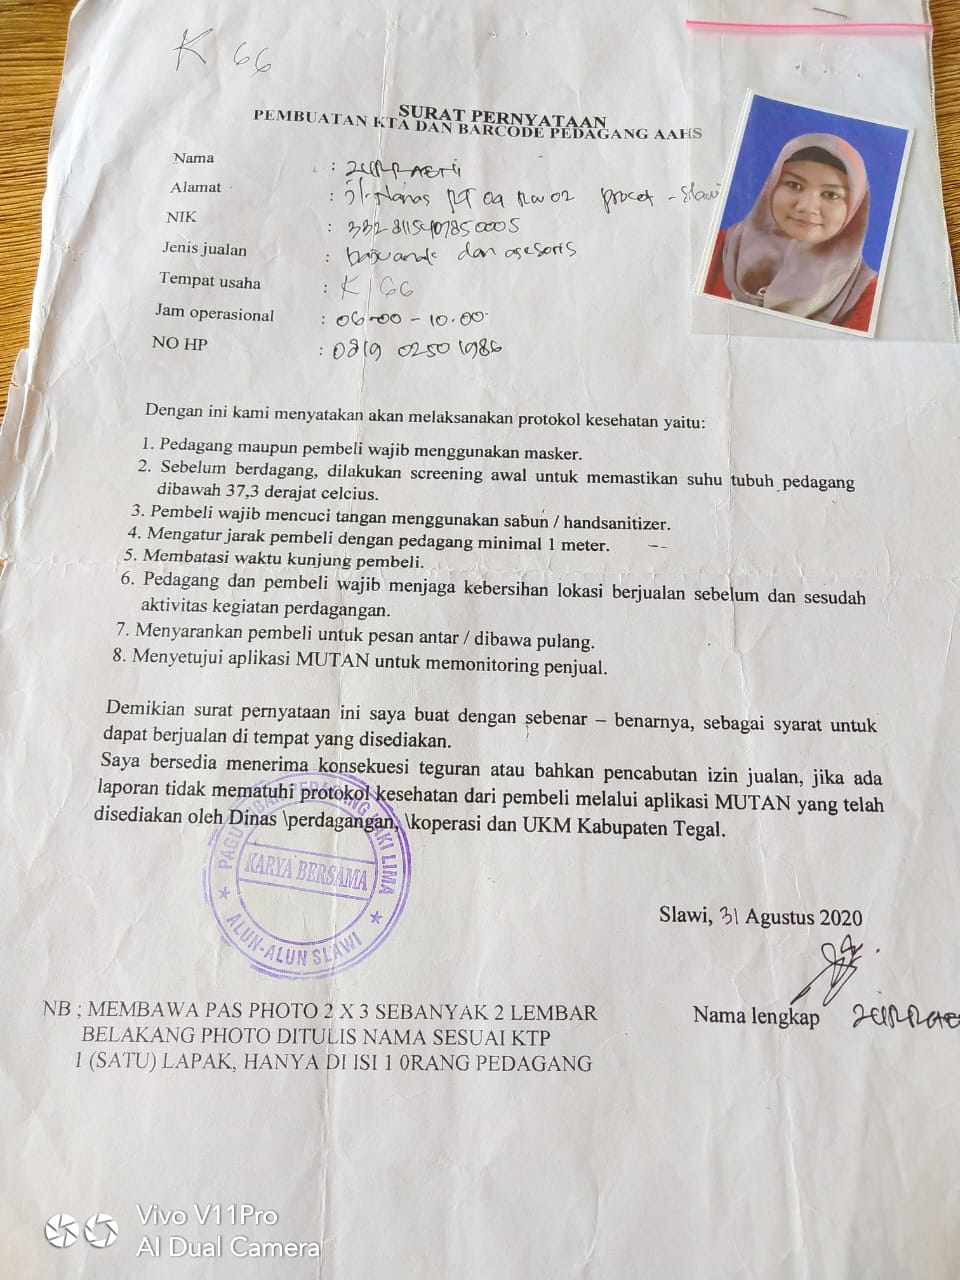 K 66
SURAT PERNYATAAN
PEMBUATAN KTA DAN BARCODE PEDAGANG AAHS
Nama :
Alamat : Jl. Nanas RT 04 RW 02 procot - Slawi
NIK :
Jenis jualan : baju anak dan asesoris
Tempat usaha : K 66
Jam operasional : 06.00 - 10.00
NO HP : 0819 0250 1986
Dengan ini kami menyatakan akan melaksanakan protokol kesehatan yaitu:
1. Pedagang maupun pembeli wajib menggunakan masker.
2. Sebelum berdagang, dilakukan screening awal untuk memastikan suhu tubuh pedagang
dibawah 37,3 derajat celcius.
3. Pembeli wajib mencuci tangan menggunakan sabun / handsanitizer.
4. Mengatur jarak pembeli dengan pedagang minimal 1 meter.
5. Membatasi waktu kunjung pembeli.
6. Pedagang dan pembeli wajib menjaga kebersihan lokasi berjualan sebelum dan sesudah
aktivitas kegiatan perdagangan.
7. Menyarankan pembeli untuk pesan antar / dibawa pulang.
8. Menyetujui aplikasi MUTAN untuk memonitoring penjual.
Demikian surat pernyataan ini saya buat dengan sebenar – benarnya, sebagai syarat untuk
dapat berjualan di tempat yang disediakan.
Saya bersedia menerima konsekuesi teguran atau bahkan pencabutan izin jualan, jika ada
laporan tidak mematuhi protokol kesehatan dari pembeli melalui aplikasi MUTAN yang telah
disediakan oleh Dinas \perdagangan, \koperasi dan UKM Kabupaten Tegal.
PEDAGANG KAKI LIMA
KARYA BERSAMA
ALUN-ALUN SLAWI
Slawi, 31 Agustus 2020
Nama lengkap
NB ; MEMBAWA PAS PHOTO 2 X 3 SEBANYAK 2 LEMBAR
BELAKANG PHOTO DITULIS NAMA SESUAI KTP
1 (SATU) LAPAK, HANYA DI ISI 1 0RANG PEDAGANG
Vivo V11Pro
AI Dual Camera